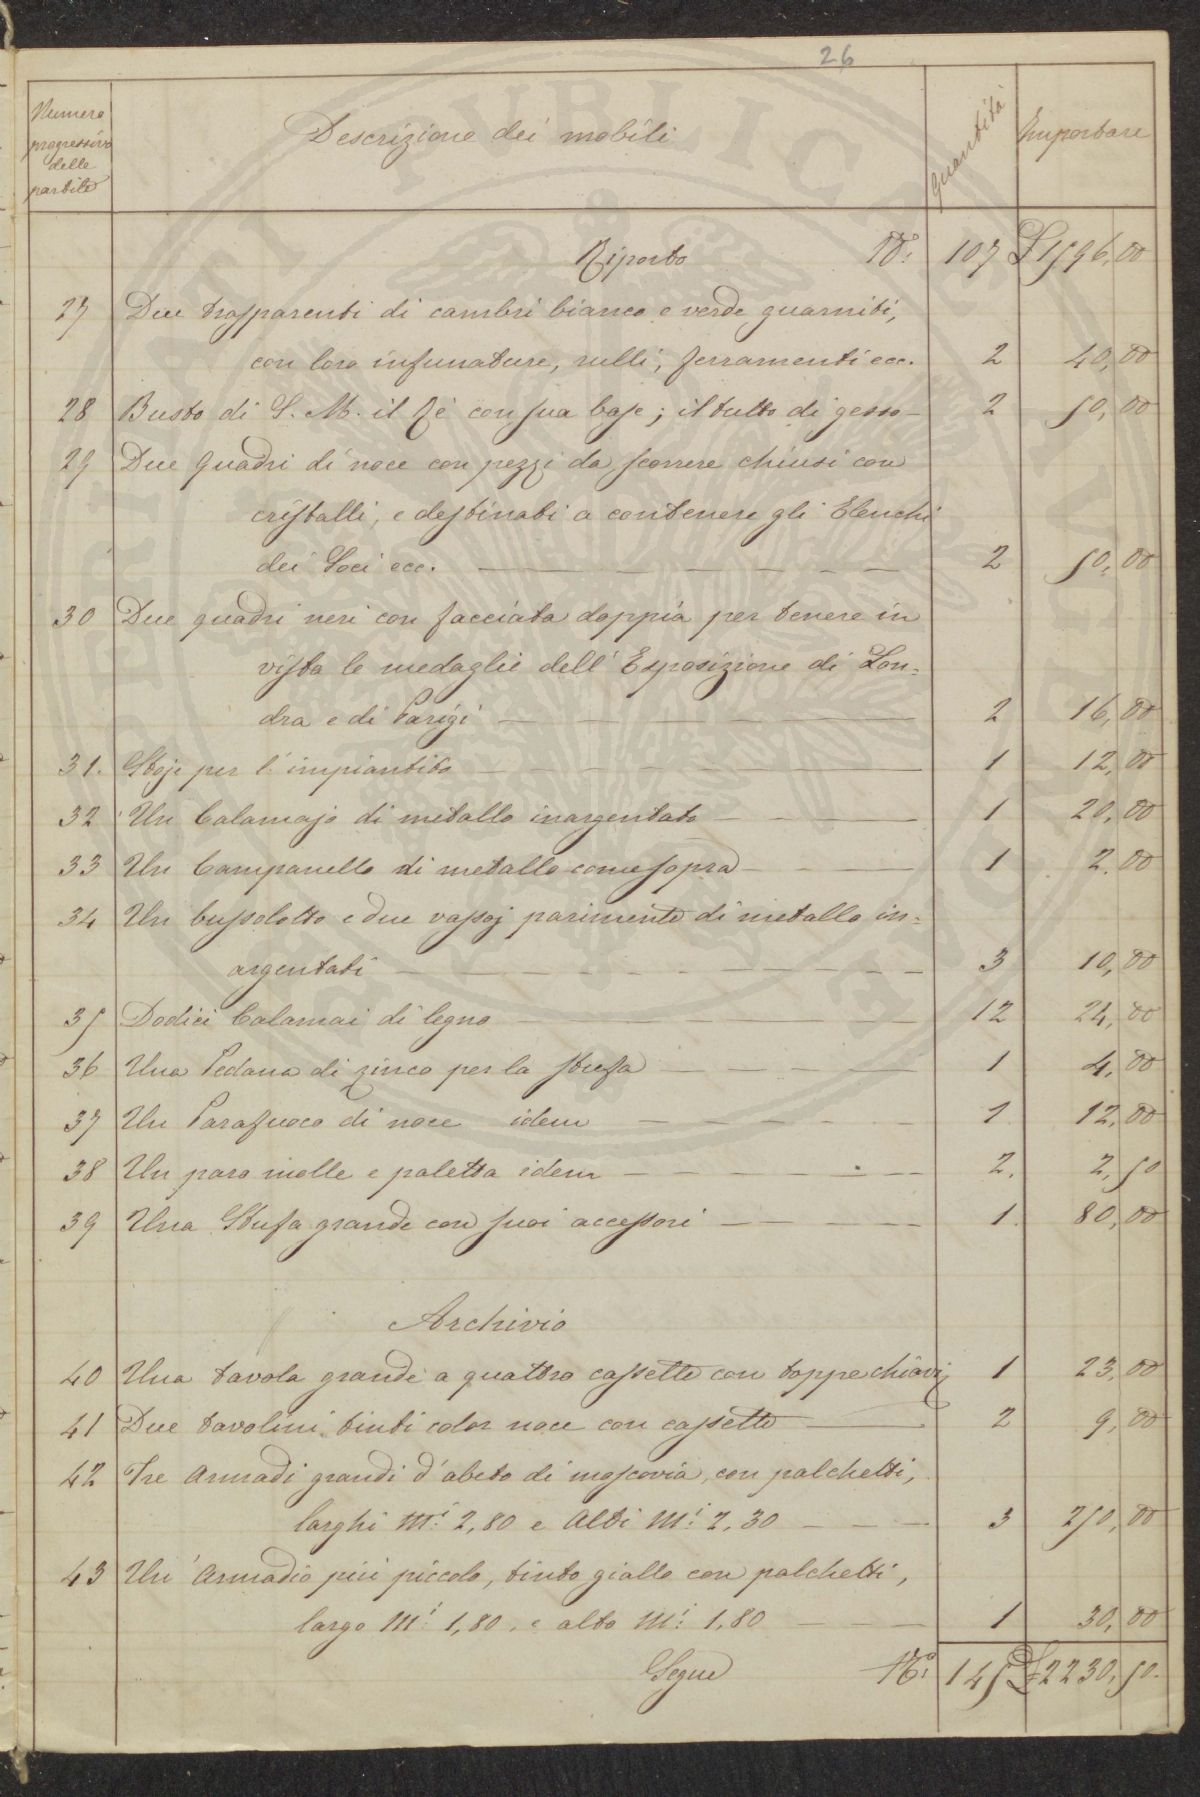 26
Numero progressivo delle partite | Descrizione dei mobili | Quantità | Importare
Riporto N°: 107 £ 1596,00
27 Due trasparenti di cambrì bianco e verde guarniti,
con loro infunature, rulli, ferramenti ecc. 2 40,00
28 Busto di S. M. il Re con sua base; il tutto di gesso 2 50,00
29 Due Quadri di noce con pezzi da scorrere chiusi con
cristalli, e destinati a contenere gli Elenchi
dei Soci ecc. 2 50,00
30 Due quadri neri con facciata doppia per tenere in
vista le medaglie dell'Esposizione di Lon=
dra e di Parigi 2 16,00
31. Stoje per l'impiantito 1 12,00
32 Un Calamajo di metallo inargentato 1 20,00
33 Un Campanello di metallo come sopra 1 2,00
34 Un bussolotto e due vassoj parimente di metallo in=
argentati 3 10,00
35 Dodici Calamai di legno 12 24,00
36 Una Pedana di zinco per la stufa 1 4,00
37 Un Parafuoco di noce idem 1 12,00
38 Un paro molle e paletta idem 2. 2,50
39 Una Stufa grande con suoi accessori 1. 80,00
Archivio
40 Una tavola grande a quattro cassette con toppe chiavi 1 23,00
41 Due tavolini tinti color noce con cassette 2 9,00
42 Tre Armadi grandi d'abeto di moscovia, con palchetti,
larghi Mi: 2,80 e Alti Mi: 2,30 3 250,00
43 Un'Armadio più piccolo, tinto giallo con palchetti,
largo Mi: 1,80, e alto Mi: 1,80 1 30,00
Segue N°: 145 £ 2230,50.